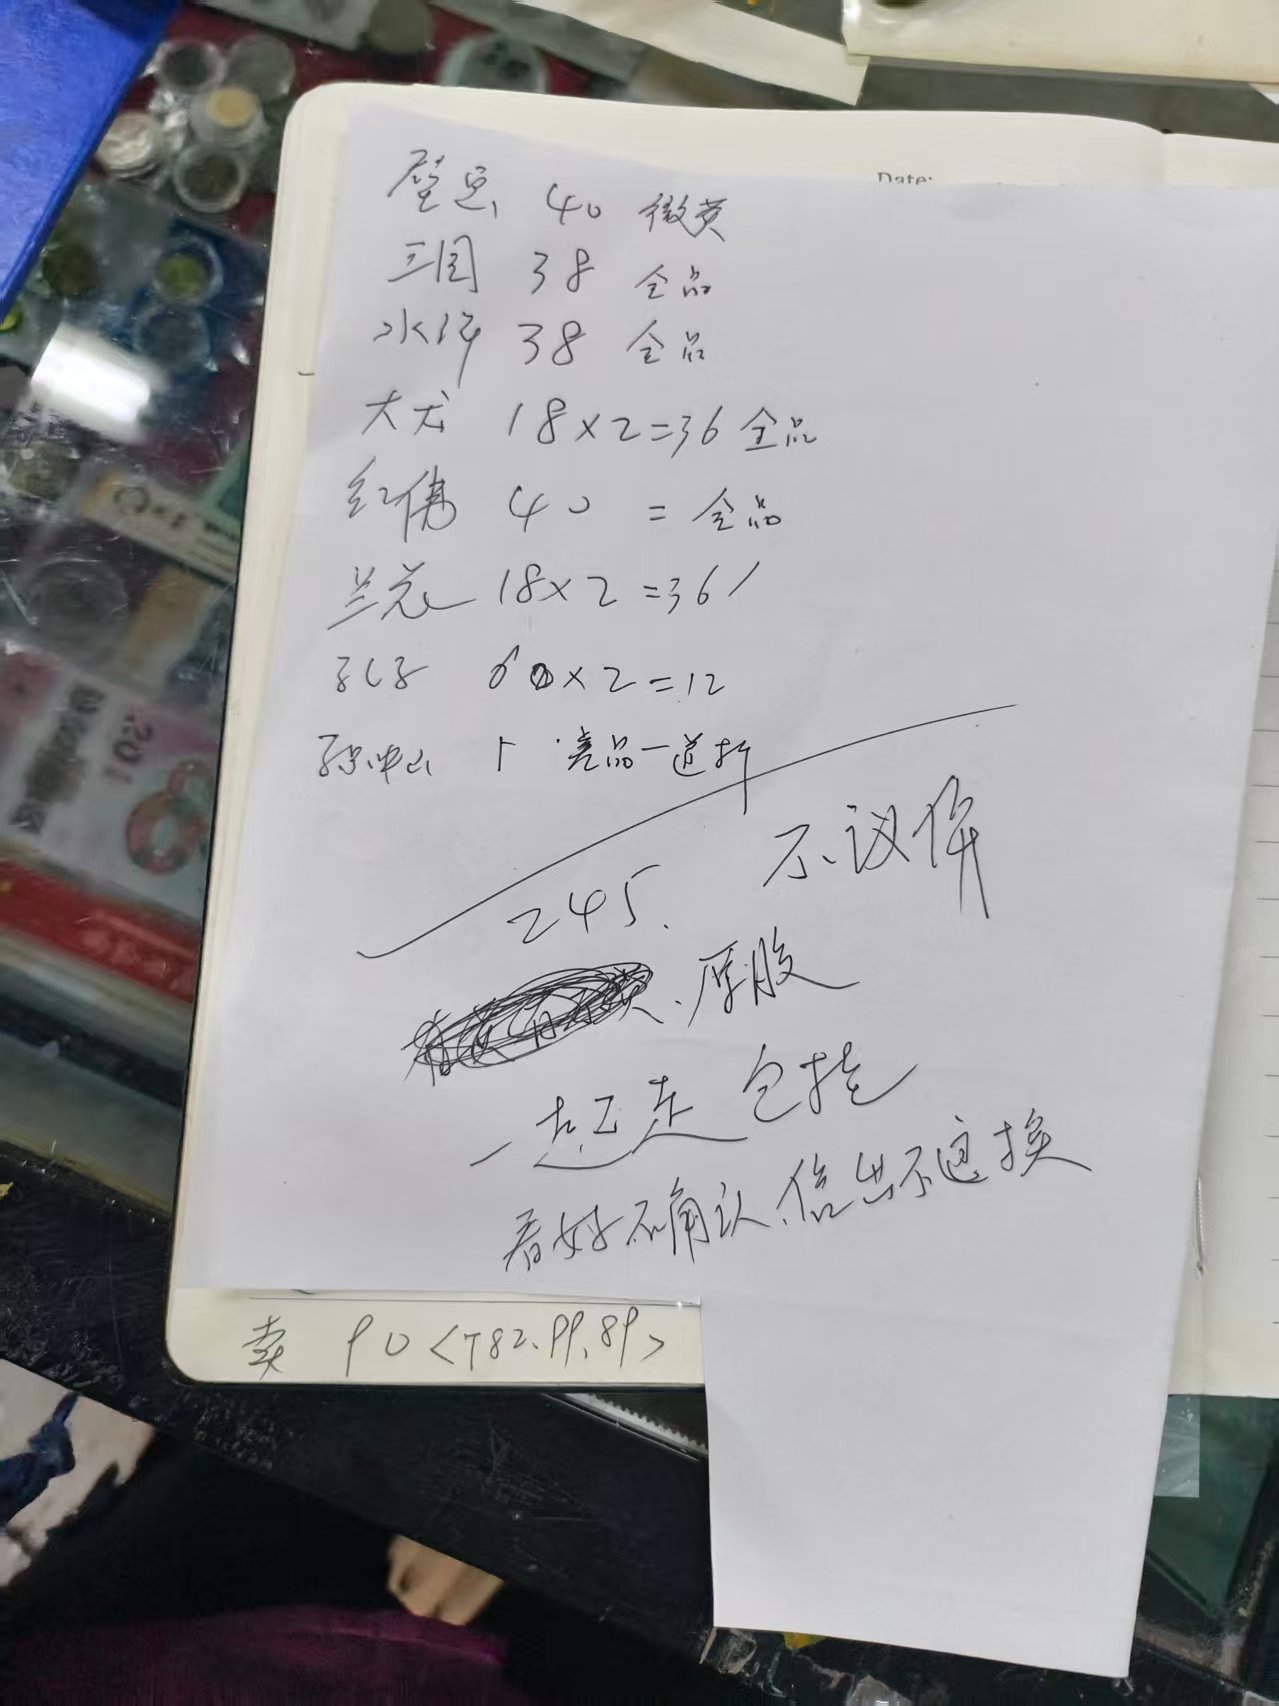 Date:
壁画 40 微黄
三国 38 全品
水浒 38 全品
大龙 18×2=36 全品
红傳 40 = 全品
兰花 18×2=36/
孔子 60×2=12
孙中山 1 差品一道折
245. 不议价
厚胶
一起走 包挂
看好再确认,售出不退换
卖 90<T82.99.89>
201